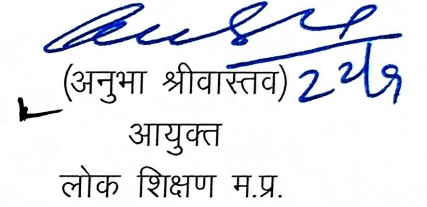 (अनुभा श्रीवास्तव) 22/9
आयुक्त
लोक शिक्षण म.प्र.